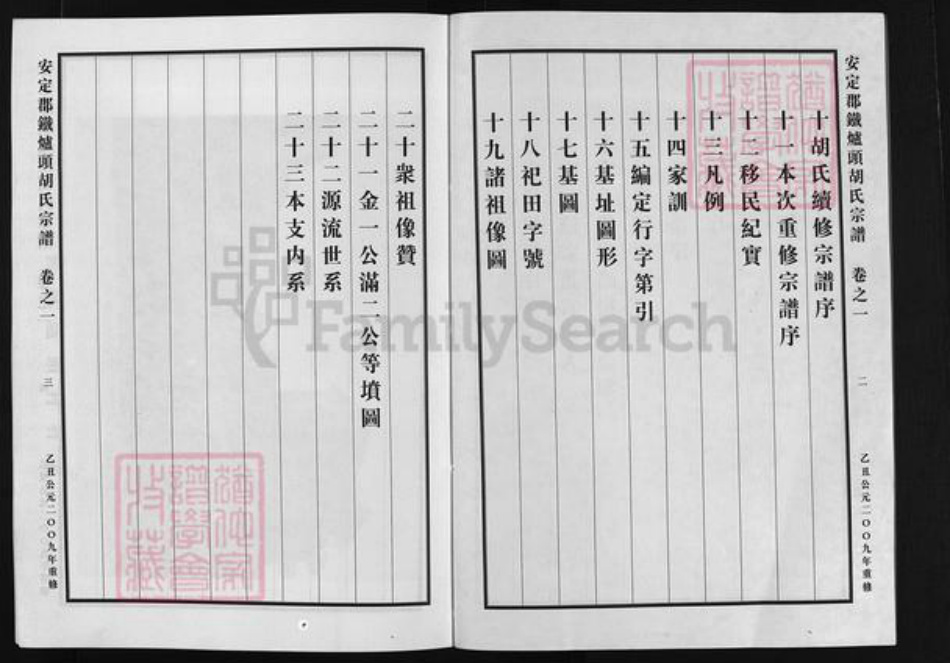 安定郡鐵爐頭胡氏宗譜 卷之一
二
乙丑公元二〇〇九年重修
十胡氏續修宗譜序
十一本次重修宗譜序
十二移民紀實
十三凡例
十四家訓
十五編定行字第引
十六基址圖形
十七基圖
十八祀田字號
十九諸祖像圖
二十衆祖像贊
二十一金一公滿二公等墳圖
二十二源流世系
二十三本支内系
安定郡鐵爐頭胡氏宗譜 卷之一
三
乙丑公元二〇〇九年重修
FamilySearch
譜學會
收藏